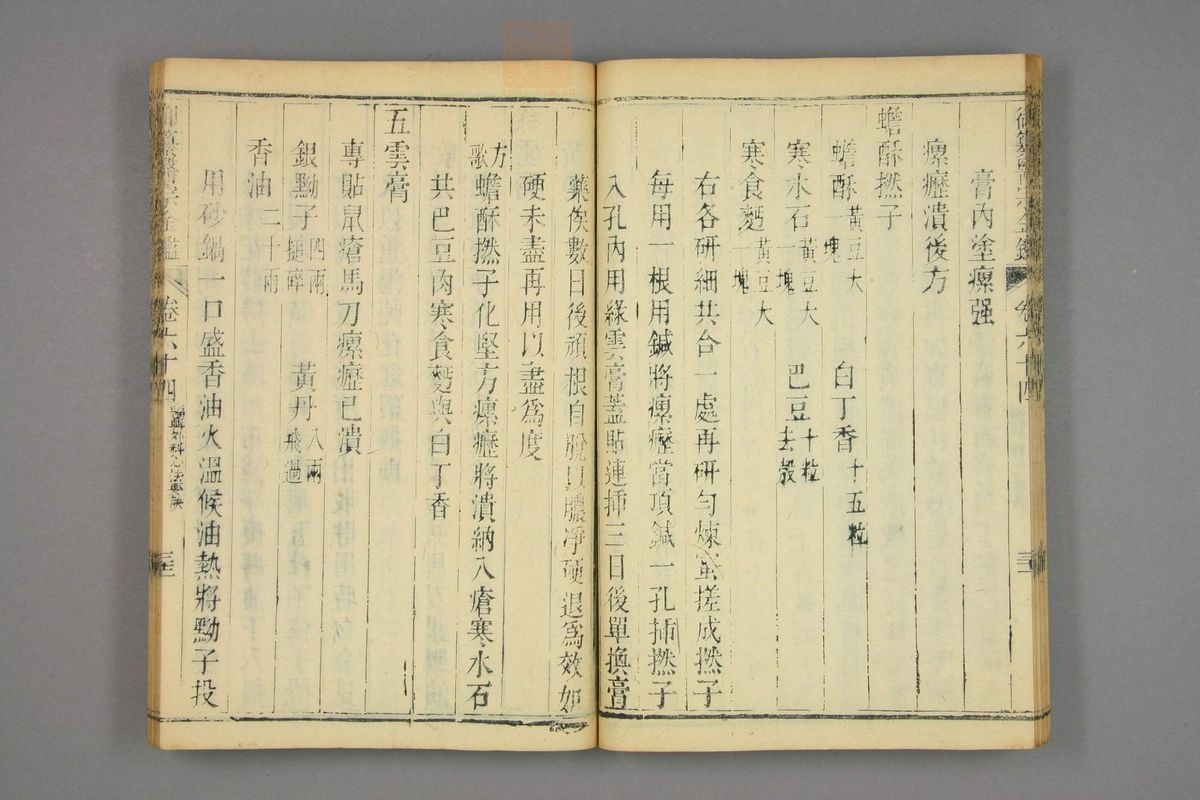 御纂醫宗金鑑 卷六十四
膏內塗瘰强
瘰癧潰後方
蟾酥撚子
蟾酥黃豆大一塊 白丁香十五粒
寒水石黃豆大一塊 巴豆十粒去殼
寒食麪黃豆大一塊
右各研細共合一處再研勻煉蜜搓成撚子
每用一根用鍼將瘰癧當頂鍼一孔揷撚子
入孔內用綠雲膏蓋貼連揷三日後單換膏
藥俟數日後頑根自脫以膿淨硬退爲效如
硬未盡再用以盡爲度
方歌蟾酥撚子化堅方瘰癧將潰納入瘡寒水石
共巴豆肉寒食麪與白丁香
五雲膏
專貼鼠瘡馬刀瘰癧已潰
銀黝子四兩搥碎 黃丹八兩飛過
香油二十兩
用砂鍋一口盛香油火溫候油熱將黝子投
御纂醫宗金鑑 卷六十四 外科心法要訣